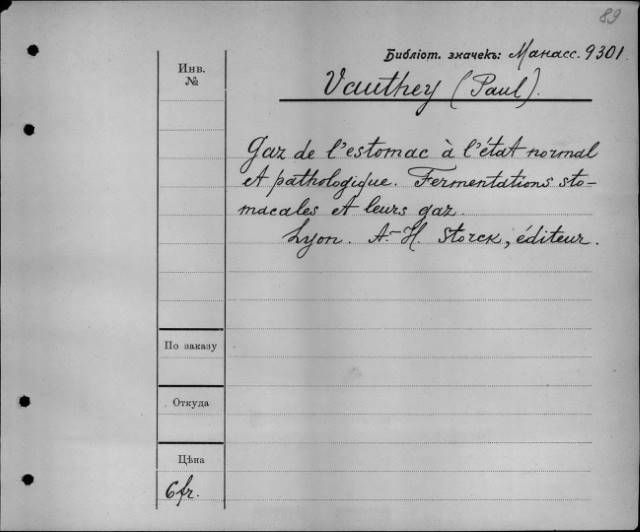 89
Библіот. значекъ: Манасс. 9301.
Инв.
№
Vauthey (Paul).
Gaz de l'estomac à l'état normal
et pathologique. Fermentations sto-
macales et leurs gaz.
Lyon. A.-H. Storck, éditeur.
По заказу
Откуда
Цѣна
6 fr.